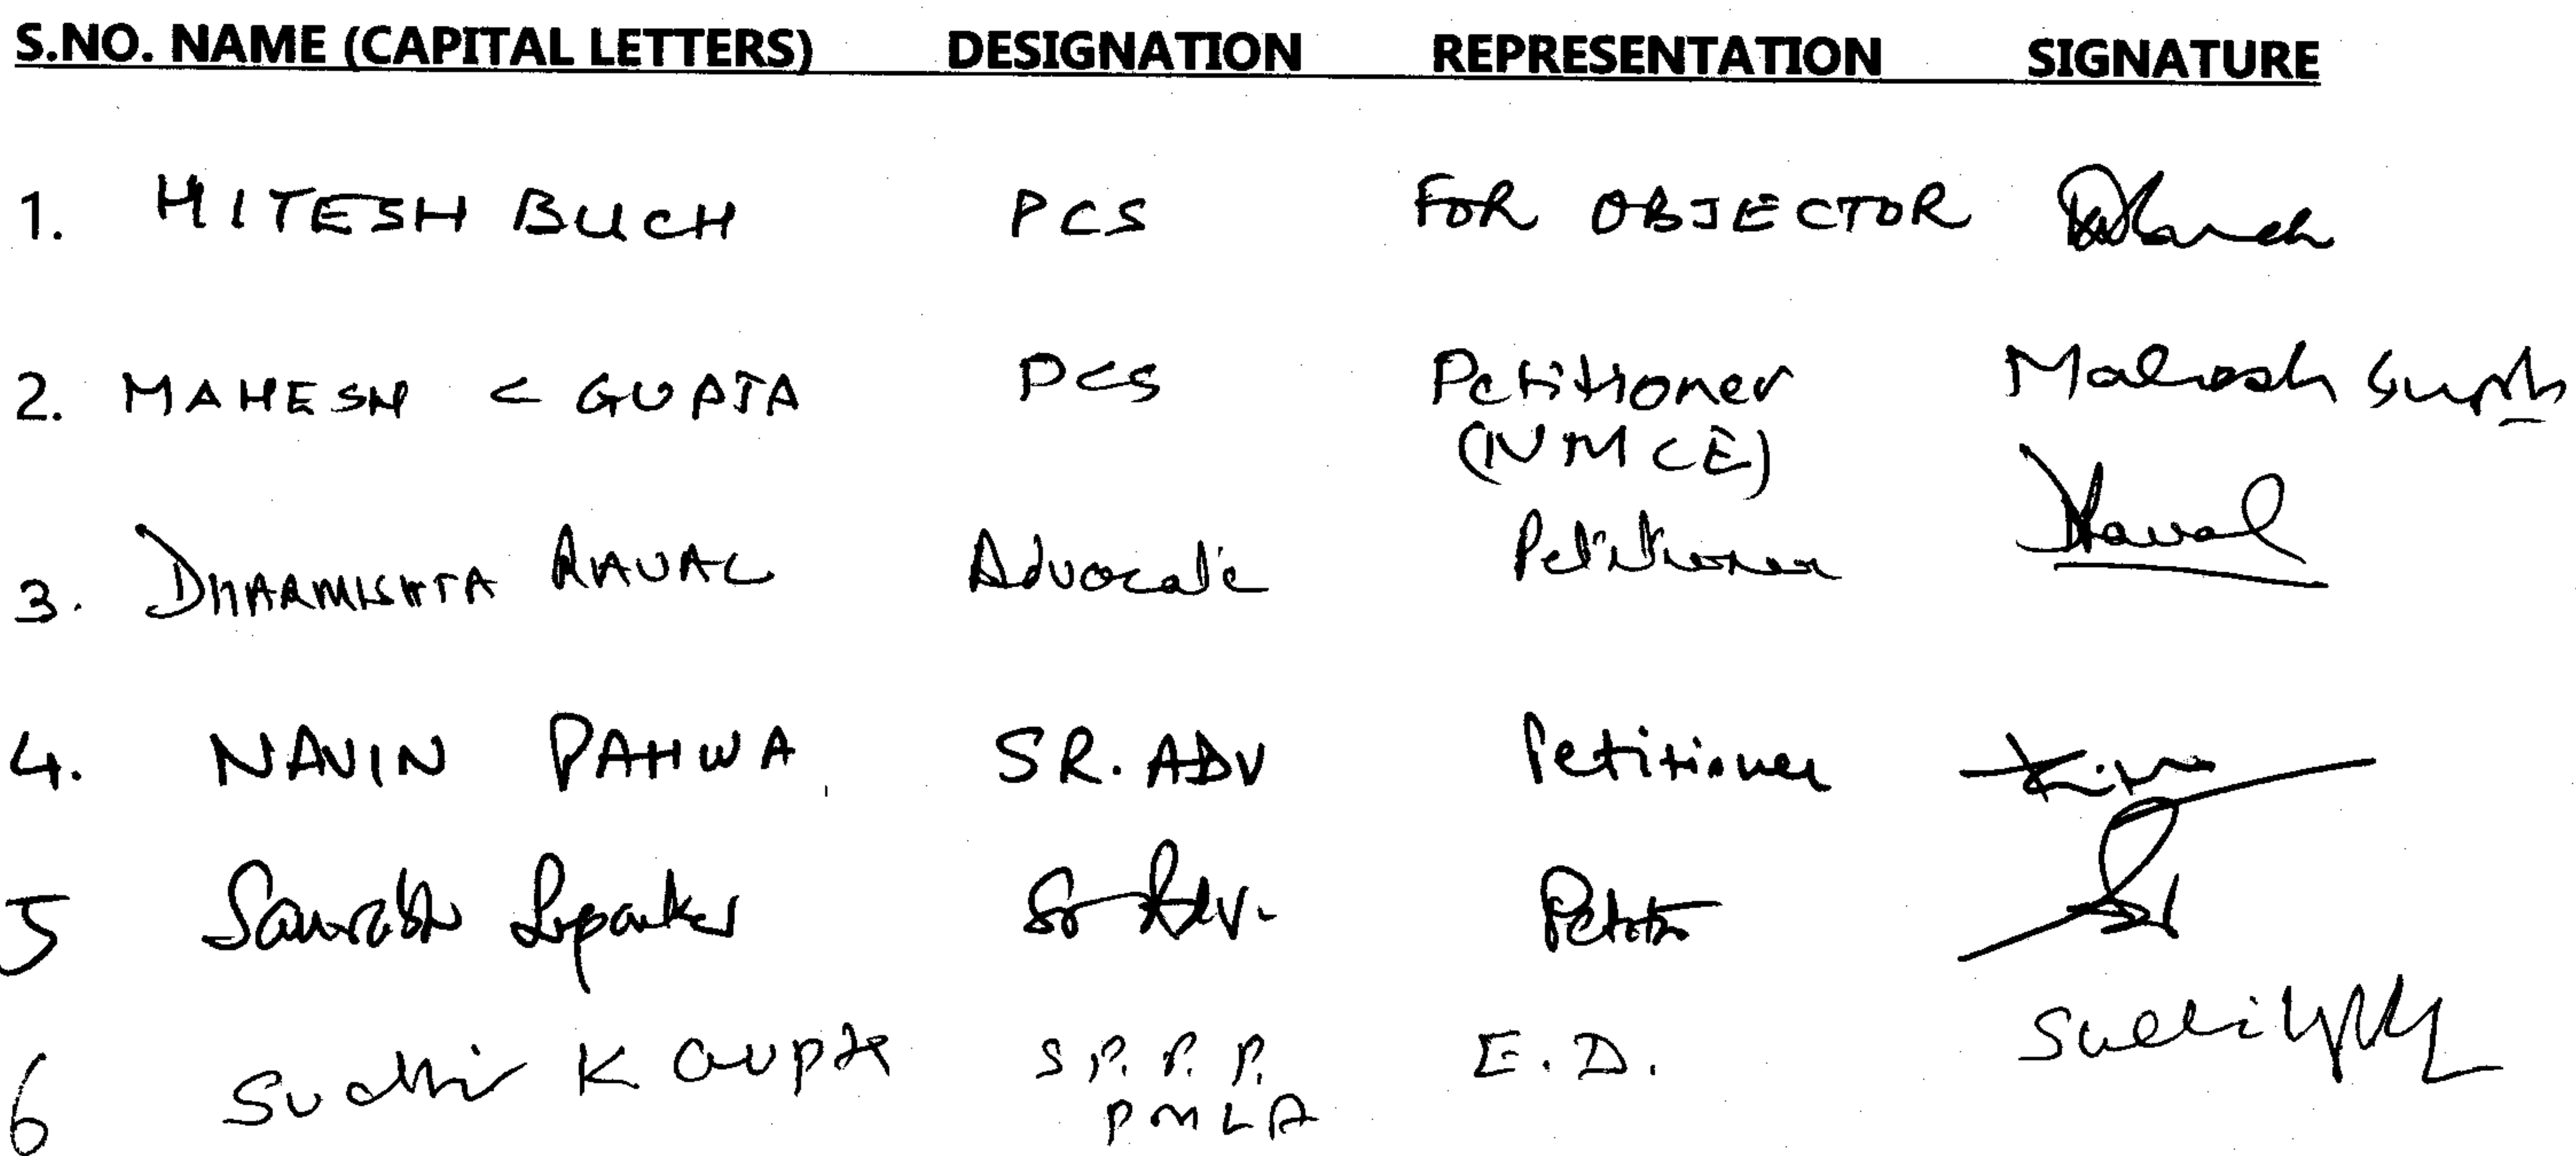 S.NO. NAME (CAPITAL LETTERS) DESIGNATION REPRESENTATION SIGNATURE
1. HITESH BUCH PCS FOR OBJECTOR
2. MAHESH C GUPTA PCS Petitioner Mahesh Gupta
(NMCE)
3. DHARMISHTA RAVAL Advocate Petitioner DRaval
4. NAVIN PAHWA SR. ADV Petitioner
5 Saurabh Soparkar Sr Adv.
6 Sudhir K Gupta S P. P. P. E. D.
PMLA